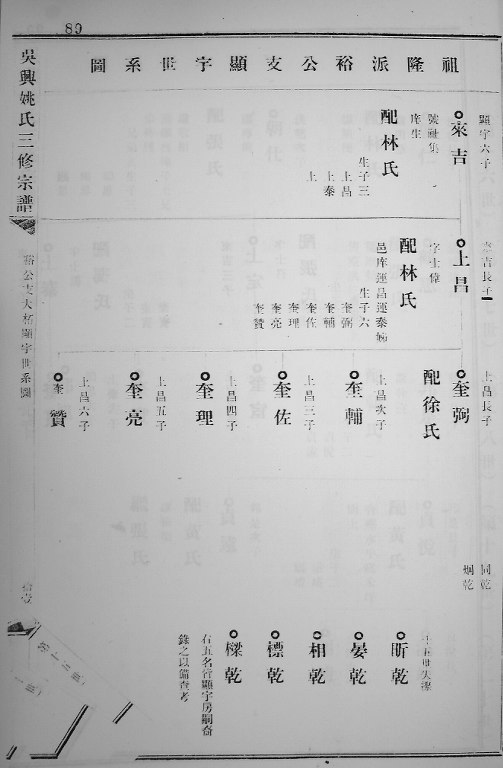 80
祖隆派裕公支顯宇世系圖
吳興姚氏三修宗譜
裕公支大柘顯宇世系圖
顯宇六子
來吉
庠生
配林氏
生子三
上昌
上泰
上
來吉長子
上昌
字士偉
配林氏
生子六
奎弼
奎輔
奎佐
奎理
奎亮
奎贊
上昌長子
奎弼
配徐氏
上昌次子
奎輔
上昌三子
奎佐
上昌四子
奎理
上昌五子
奎亮
上昌六子
奎贊
同乾
炯乾
昕乾
晏乾
相乾
標乾
樑乾
右五名皆顯宇房嗣裔
錄之以備查考